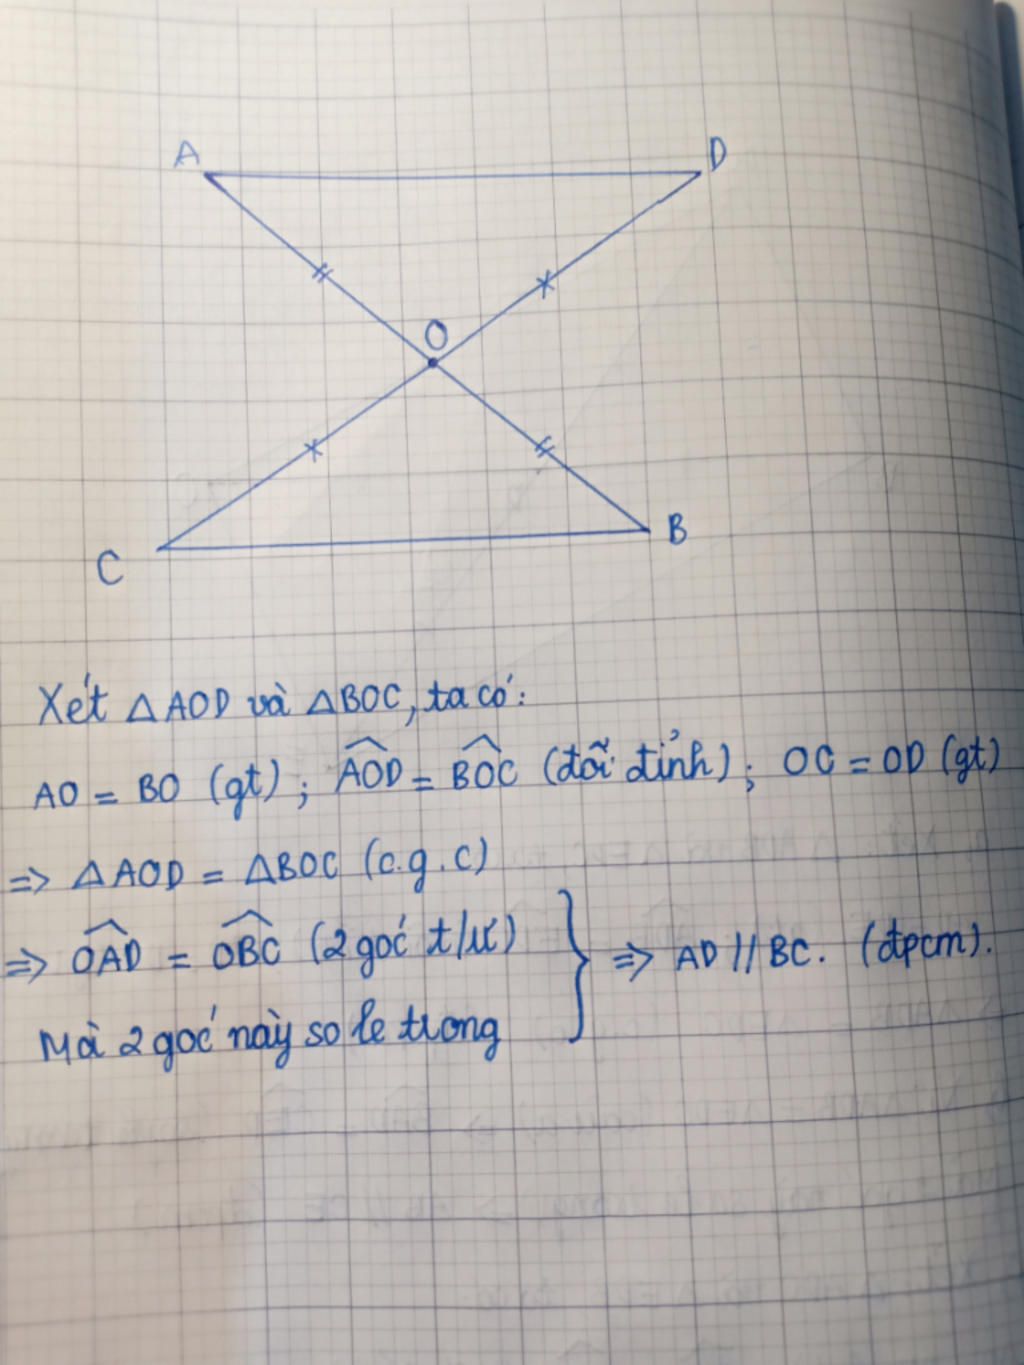 A D
O
C B
Xét △AOD và △BOC, ta có:
AO = BO (gt); \widehat{AOD} = \widehat{BOC} (đối đỉnh); OC = OD (gt)
⇒ △AOD = △BOC (c.g.c)
⇒ \widehat{OAD} = \widehat{OBC} (2 góc t/ư) } ⇒ AD // BC. (đpcm).
Mà 2 góc này so le trong